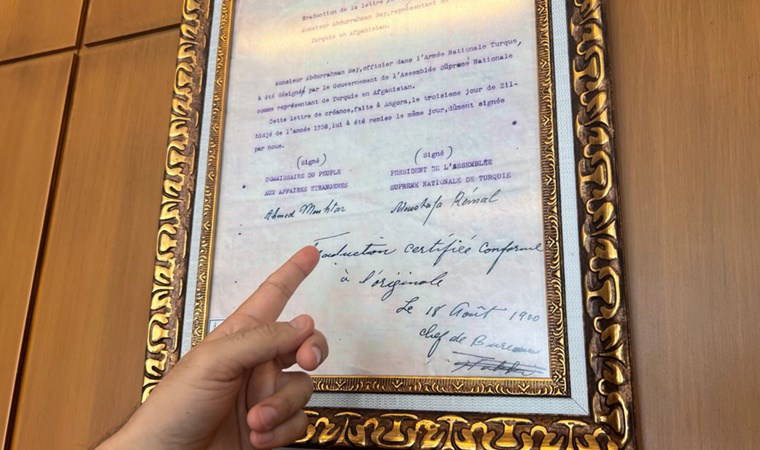 Traduction de la lettre
Monsieur Abdurrahman Bey, représentant de
Turquie en Afganistan.
Monsieur Abdurrahman Bey, officier dans l'Armée Nationale Turque,
à été désigné par le Gouvernement de l'Assemblée Suprème Nationale
comme représentant de Turquie en Afganistan.
Cette lettre de créance, faite à Angora, le troisieme jour de Zil-
hidjé de l'année 1338, lui à été remise le même jour, dûment signée
par nous.
(Signé) (Signé)
COMMISSAIRE DU PEUPLE PRESIDENT DE L'ASSEMBLÉE
AUX AFFAIRES ETRANGERES SUPREME NATIONALE DE TURQUIE
Ahmed Mouhtar Moustafa Kémal
Traduction certifiée conforme
à l'originale
Le 18 Août 1920
Chef de Bureau